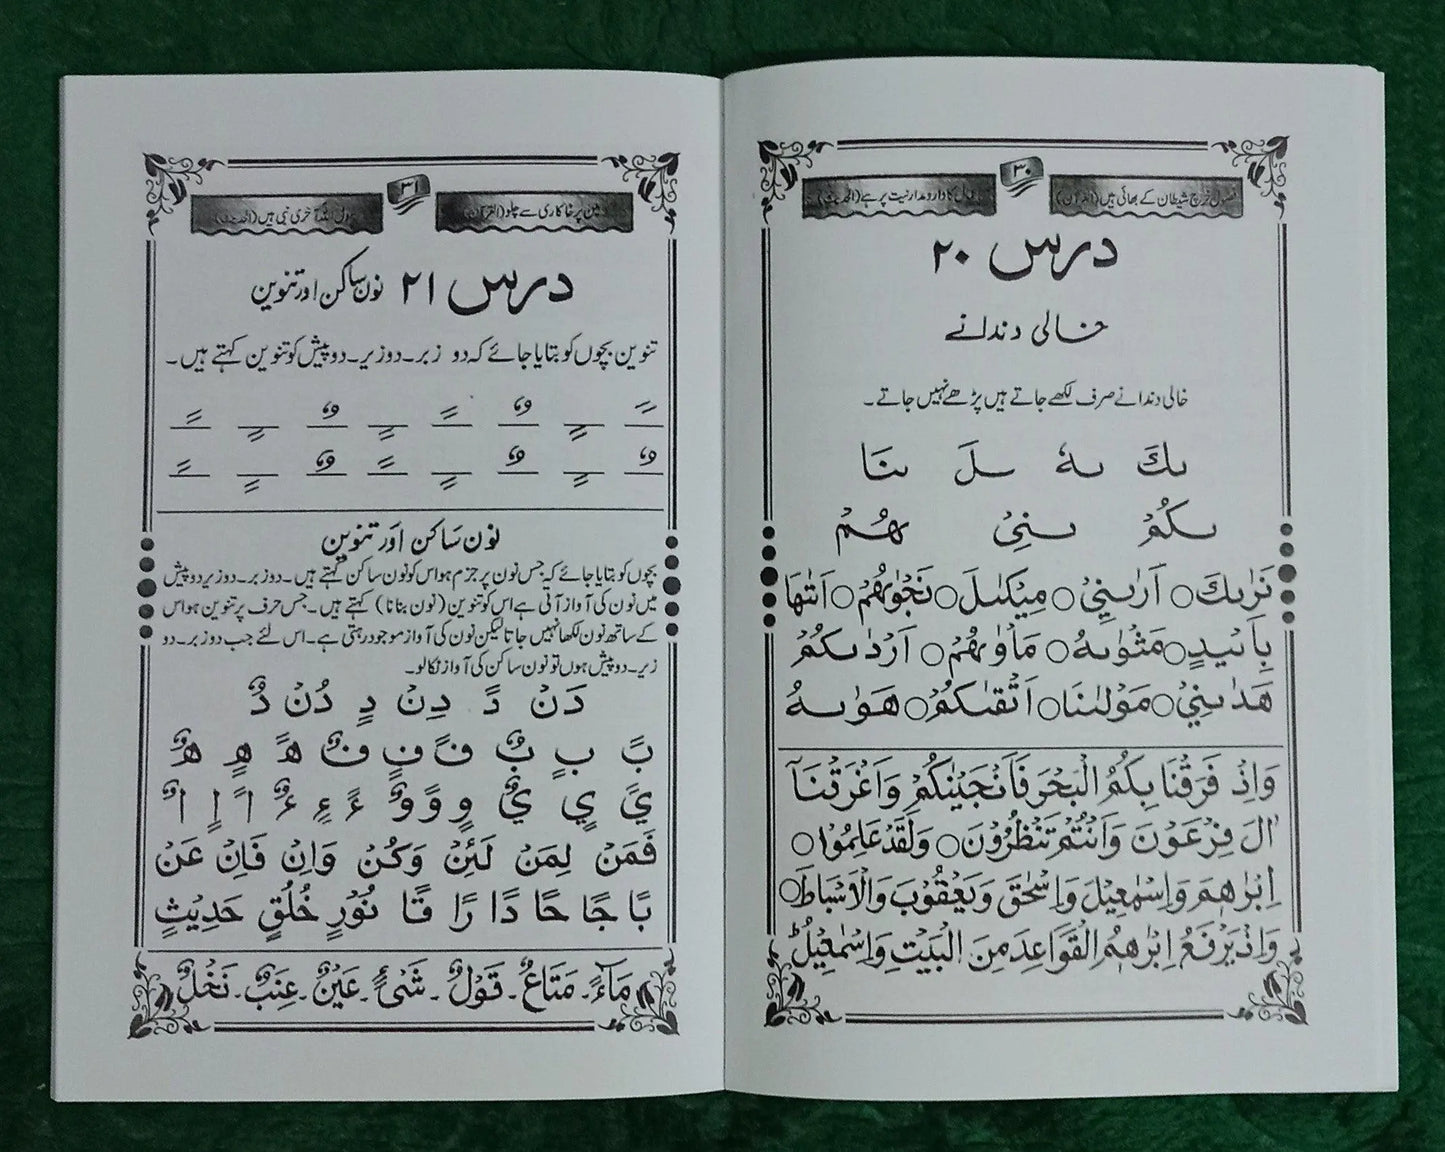 فضول خرچ شیطان کے بھائی ہیں (القرآن)
۳۰
اعمال کا دارومدار نیت پر ہے (الحدیث)
درس ۲۰
خالی دندانے
خالی دندانے صرف لکھے جاتے ہیں پڑھے نہیں جاتے۔
ىكَ ىهٗ ىلَ ىنَا
ىكُمْ ىنِيْ هُمْ
نَرٰىكَ ○ اَرٰىنِيْ ○ مِيْكٰىلَ ○ نَجْوٰىهُمْ ○ اَتٰىهَا
بِاَىْىدٍ ○ مَثْوٰىهُ ○ مَاْوٰىهُمْ ○ اَرْدٰىكُمْ
هَدٰىنِيْ ○ مَوْلٰىنَا ○ اَتْقٰىكُمْ ○ هَوٰىهُ
وَاِذْ فَرَقْنَا بِكُمُ الْبَحْرَ فَاَنْجَيْنٰكُمْ وَاَغْرَقْنَآ
اٰلَ فِرْعَوْنَ وَاَنْتُمْ تَنْظُرُوْنَ ○ وَلَقَدْ عَلِمُوْا ○
اِبْرٰهٖمَ وَاِسْمٰعِيْلَ وَاِسْحٰقَ وَيَعْقُوْبَ وَالْاَسْبَاطَ ○
وَاِذْ يَرْفَعُ اِبْرٰهٖمُ الْقَوَاعِدَ مِنَ الْبَيْتِ وَاِسْمٰعِيْلُ ؕ
زمین پر خاکاری سے چلو (القرآن)
۳۱
آخری نبی ہیں (الحدیث)
درس ۲۱ نون ساکن اور تنوین
تنوین بچوں کو بتایا جائے کہ دو زبر۔ دو زیر۔ دو پیش کو تنوین کہتے ہیں۔
نون ساکن اور تنوین
بچوں کو بتایا جائے کہ جس نون پر جزم ہو اس کو نون ساکن کہتے ہیں۔ دو زبر۔ دو زیر دو پیش
میں نون کی آواز آتی ہے اس کو تنوین (نون بنانا) کہتے ہیں۔ جس حرف پر تنوین ہو اس
کے ساتھ نون لکھا نہیں جاتا لیکن نون کی آواز موجود رہتی ہے۔ اس لئے جب دو زبر۔ دو
زیر۔ دو پیش ہوں تو نون ساکن کی آواز نکالو۔
دَنْ دً دِنْ دٍ دُنْ دٌ
بً بٍ بٌ فً فٍ فٌ هً هٍ هٌ
يً يٍ يٌ وٍ وً وٌ ءً ءٍ ءٌ اً اٍ اٌ
فَمَنْ لِمَنْ لَئِنْ وَكُنْ وَاِنْ فَاِنْ عَنْ
بًا جًا حًا دًا رًا قًا نُوْرٍ خُلُقٍ حَدِيْثٍ
مَآءً۔ مَتَاعٌ۔ قَوْلٌ۔ شَىْءً۔ عَيْنٌ۔ عِنَبٌ۔ نَخْلٌ